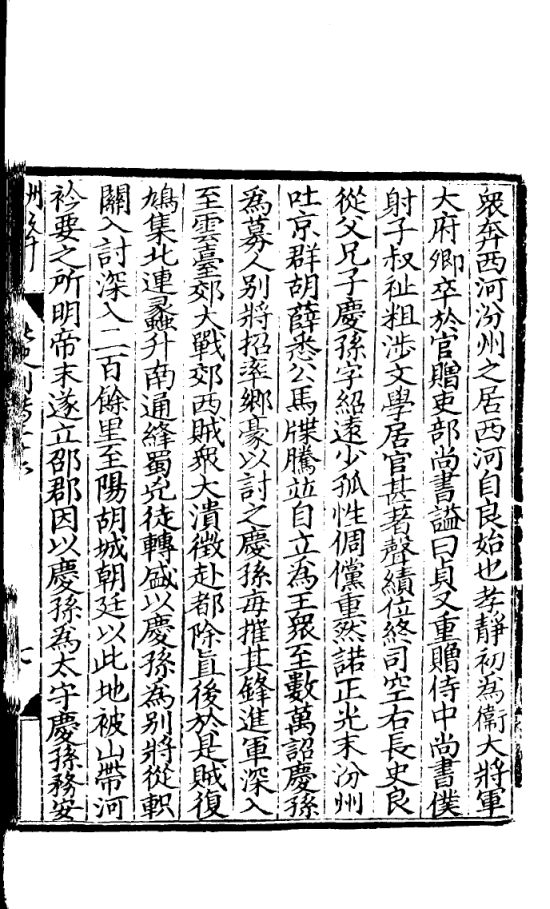 眾奔西河汾州之居西河自良始也孝靜初爲衞大將軍
大府卿卒於官贈吏部尚書謚曰貞又重贈侍中尚書僕
射子叔祉粗涉文學居官甚著聲績位終司空右長史良
從父兄子慶孫字紹遠少孤性倜儻重然諾正光末汾州
吐京群胡薛悉公馬牒騰並自立為王眾至數萬詔慶孫
爲募人別將招率鄉豪以討之慶孫每摧其鋒進軍深入
至雲臺郊大戰郊西賊眾大潰徵赴都除直後於是賊復
鳩集北連蠡升南通絳蜀兇徒轉盛以慶孫為別將從軹
關入討深入二百餘里至陽胡城朝廷以此地被山帶河
衿要之所明帝末遂立邵郡因以慶孫為太守慶孫務安